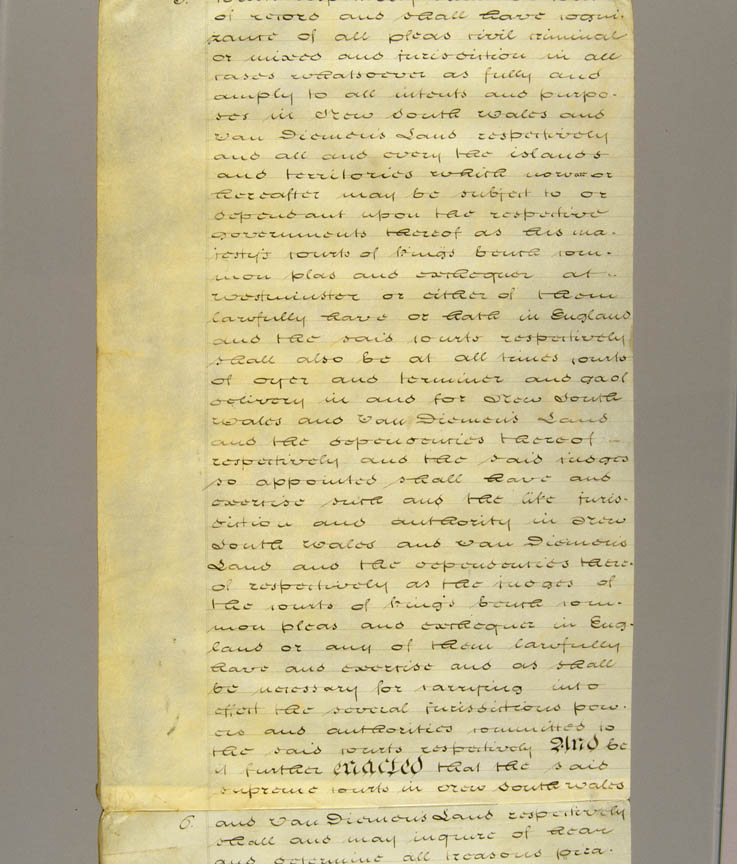 of record and shall have cogni-
zance of all pleas civil criminal
or mixed and jurisdiction in all
cases whatsoever as fully and
amply to all intents and purpo-
ses in New South Wales and
Van Diemens Land respectively
and all and every the islands
and territories which now or
hereafter may be subject to or
dependant upon the respective
governments thereof as his ma-
jesty's courts of kings bench com-
mon plas and exchequer at
westminster or either of them
lawfully have or hath in England
and the said courts respectively
shall also be at all times courts
of oyer and terminer and gaol
delivery in and for New South
Wales and Van Diemen's Land
and the dependencies thereof
respectively and the said judges
so appointed shall have and
exercise such and the like juris-
diction and authority in New
South Wales and Van Diemens
Land and the dependencies there-
of respectively as the judges of
the courts of king's bench com-
mon pleas and exchequer in Eng-
land or any of them lawfully
have and exercise and as shall
be necessary for carrying into
effect the several jurisdictions pow-
ers and authorities committed to
the said courts respectively And be
it further enacted that the said
supreme courts in New South Wales
6. and Van Diemens Land respectively
shall and may inquire of hear
and determine all treasons pira-